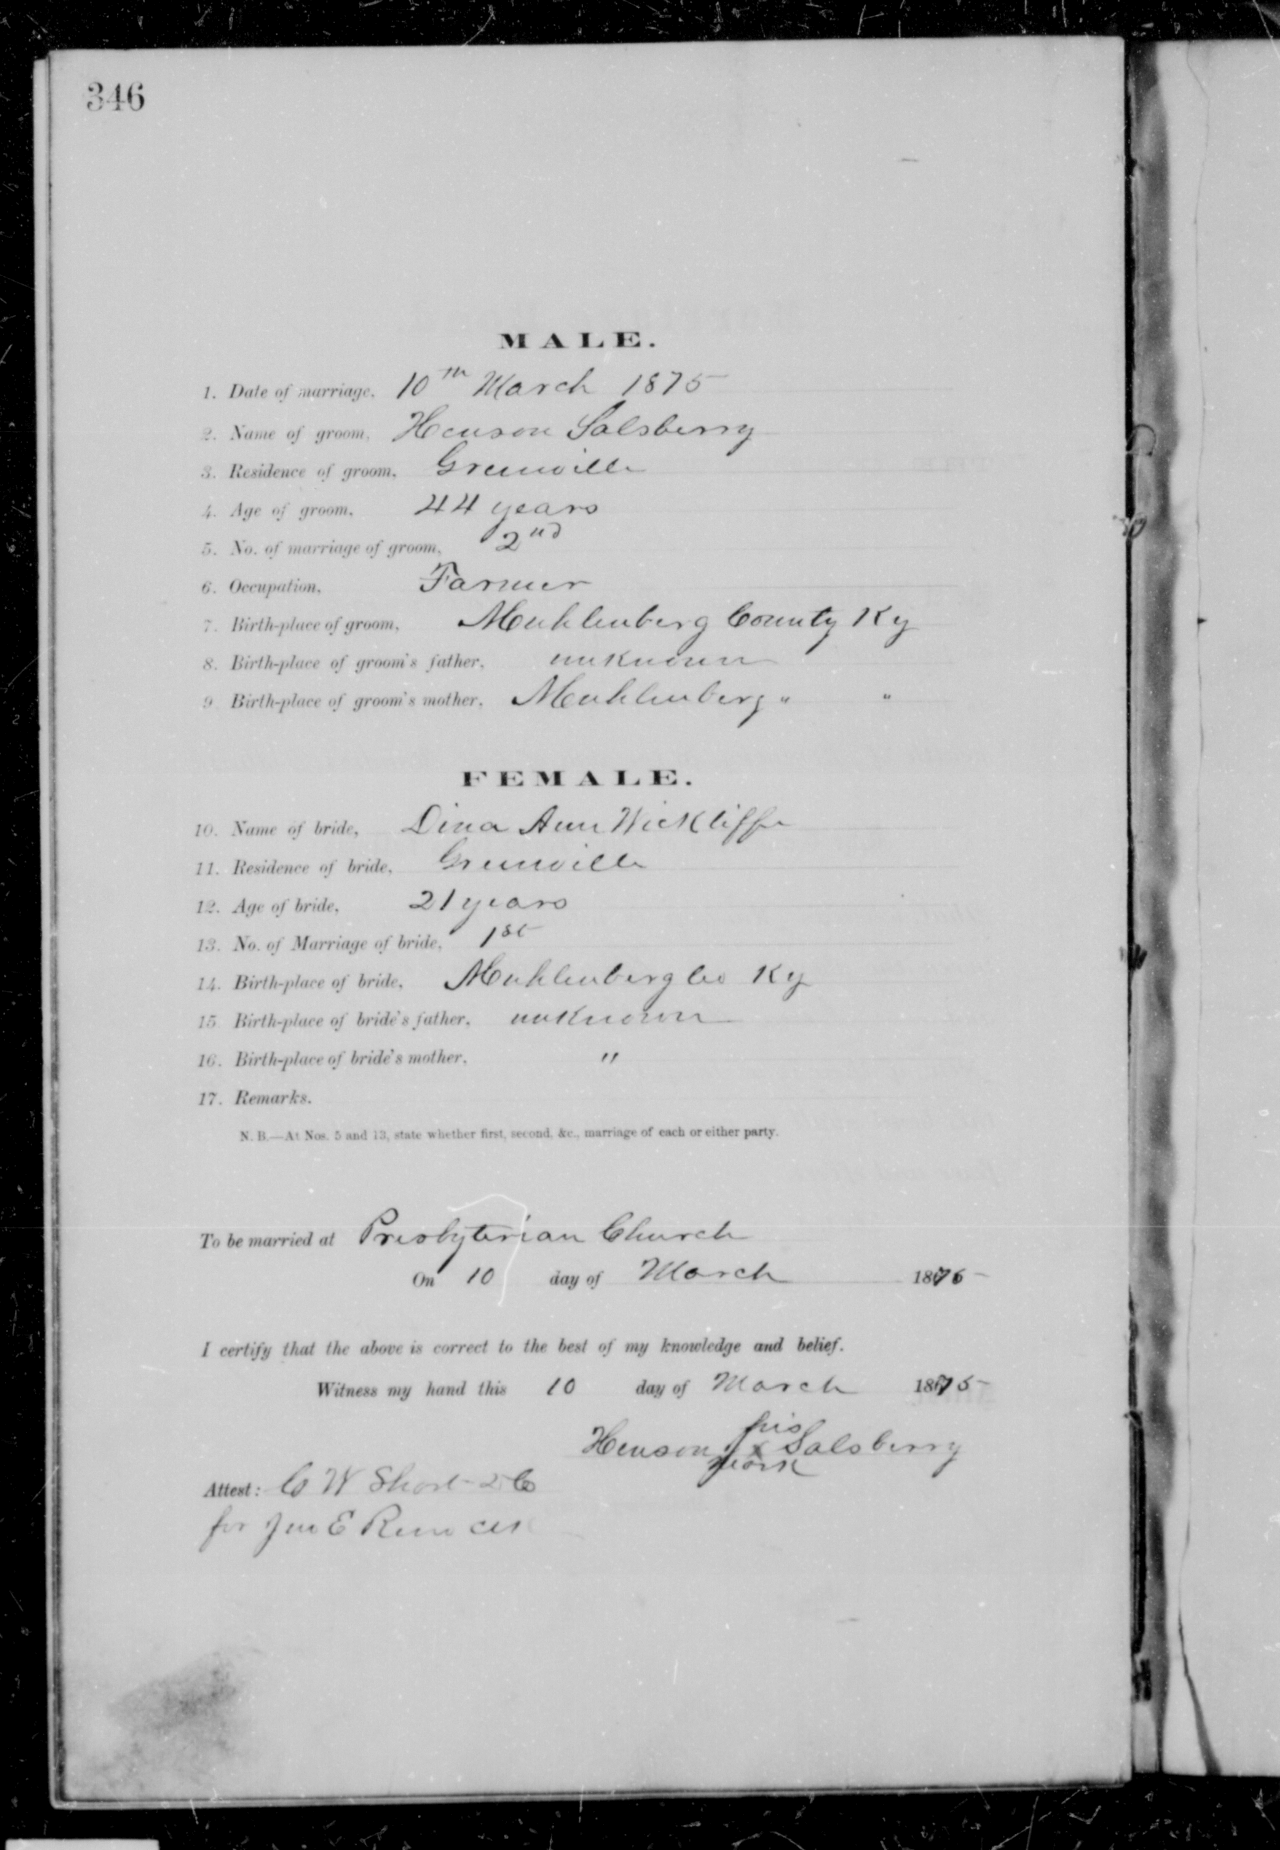 346
MALE.
1. Date of marriage, 10th March 1875
2. Name of groom, Henson Salsberry
3. Residence of groom, Greenville
4. Age of groom, 44 years
5. No. of marriage of groom, 2nd
6. Occupation, Farmer
7. Birth-place of groom, Muhlenberg County Ky
8. Birth-place of groom's father, unknown
9. Birth-place of groom's mother, Muhlenberg " "
FEMALE.
10. Name of bride, Dina Ann Wickliffe
11. Residence of bride, Greenville
12. Age of bride, 21 years
13. No. of Marriage of bride, 1st
14. Birth-place of bride, Muhlenberg Co Ky
15. Birth-place of bride's father, unknown
16. Birth-place of bride's mother, "
17. Remarks.
N. B.—At Nos. 5 and 13, state whether first, second, &c., marriage of each or either party.
To be married at Presbyterian Church
On 10 day of March 1875
I certify that the above is correct to the best of my knowledge and belief.
Witness my hand this 10 day of March 1875
his
Henson x Salsberry
mark
Attest: C W Short
for Jno E Reno